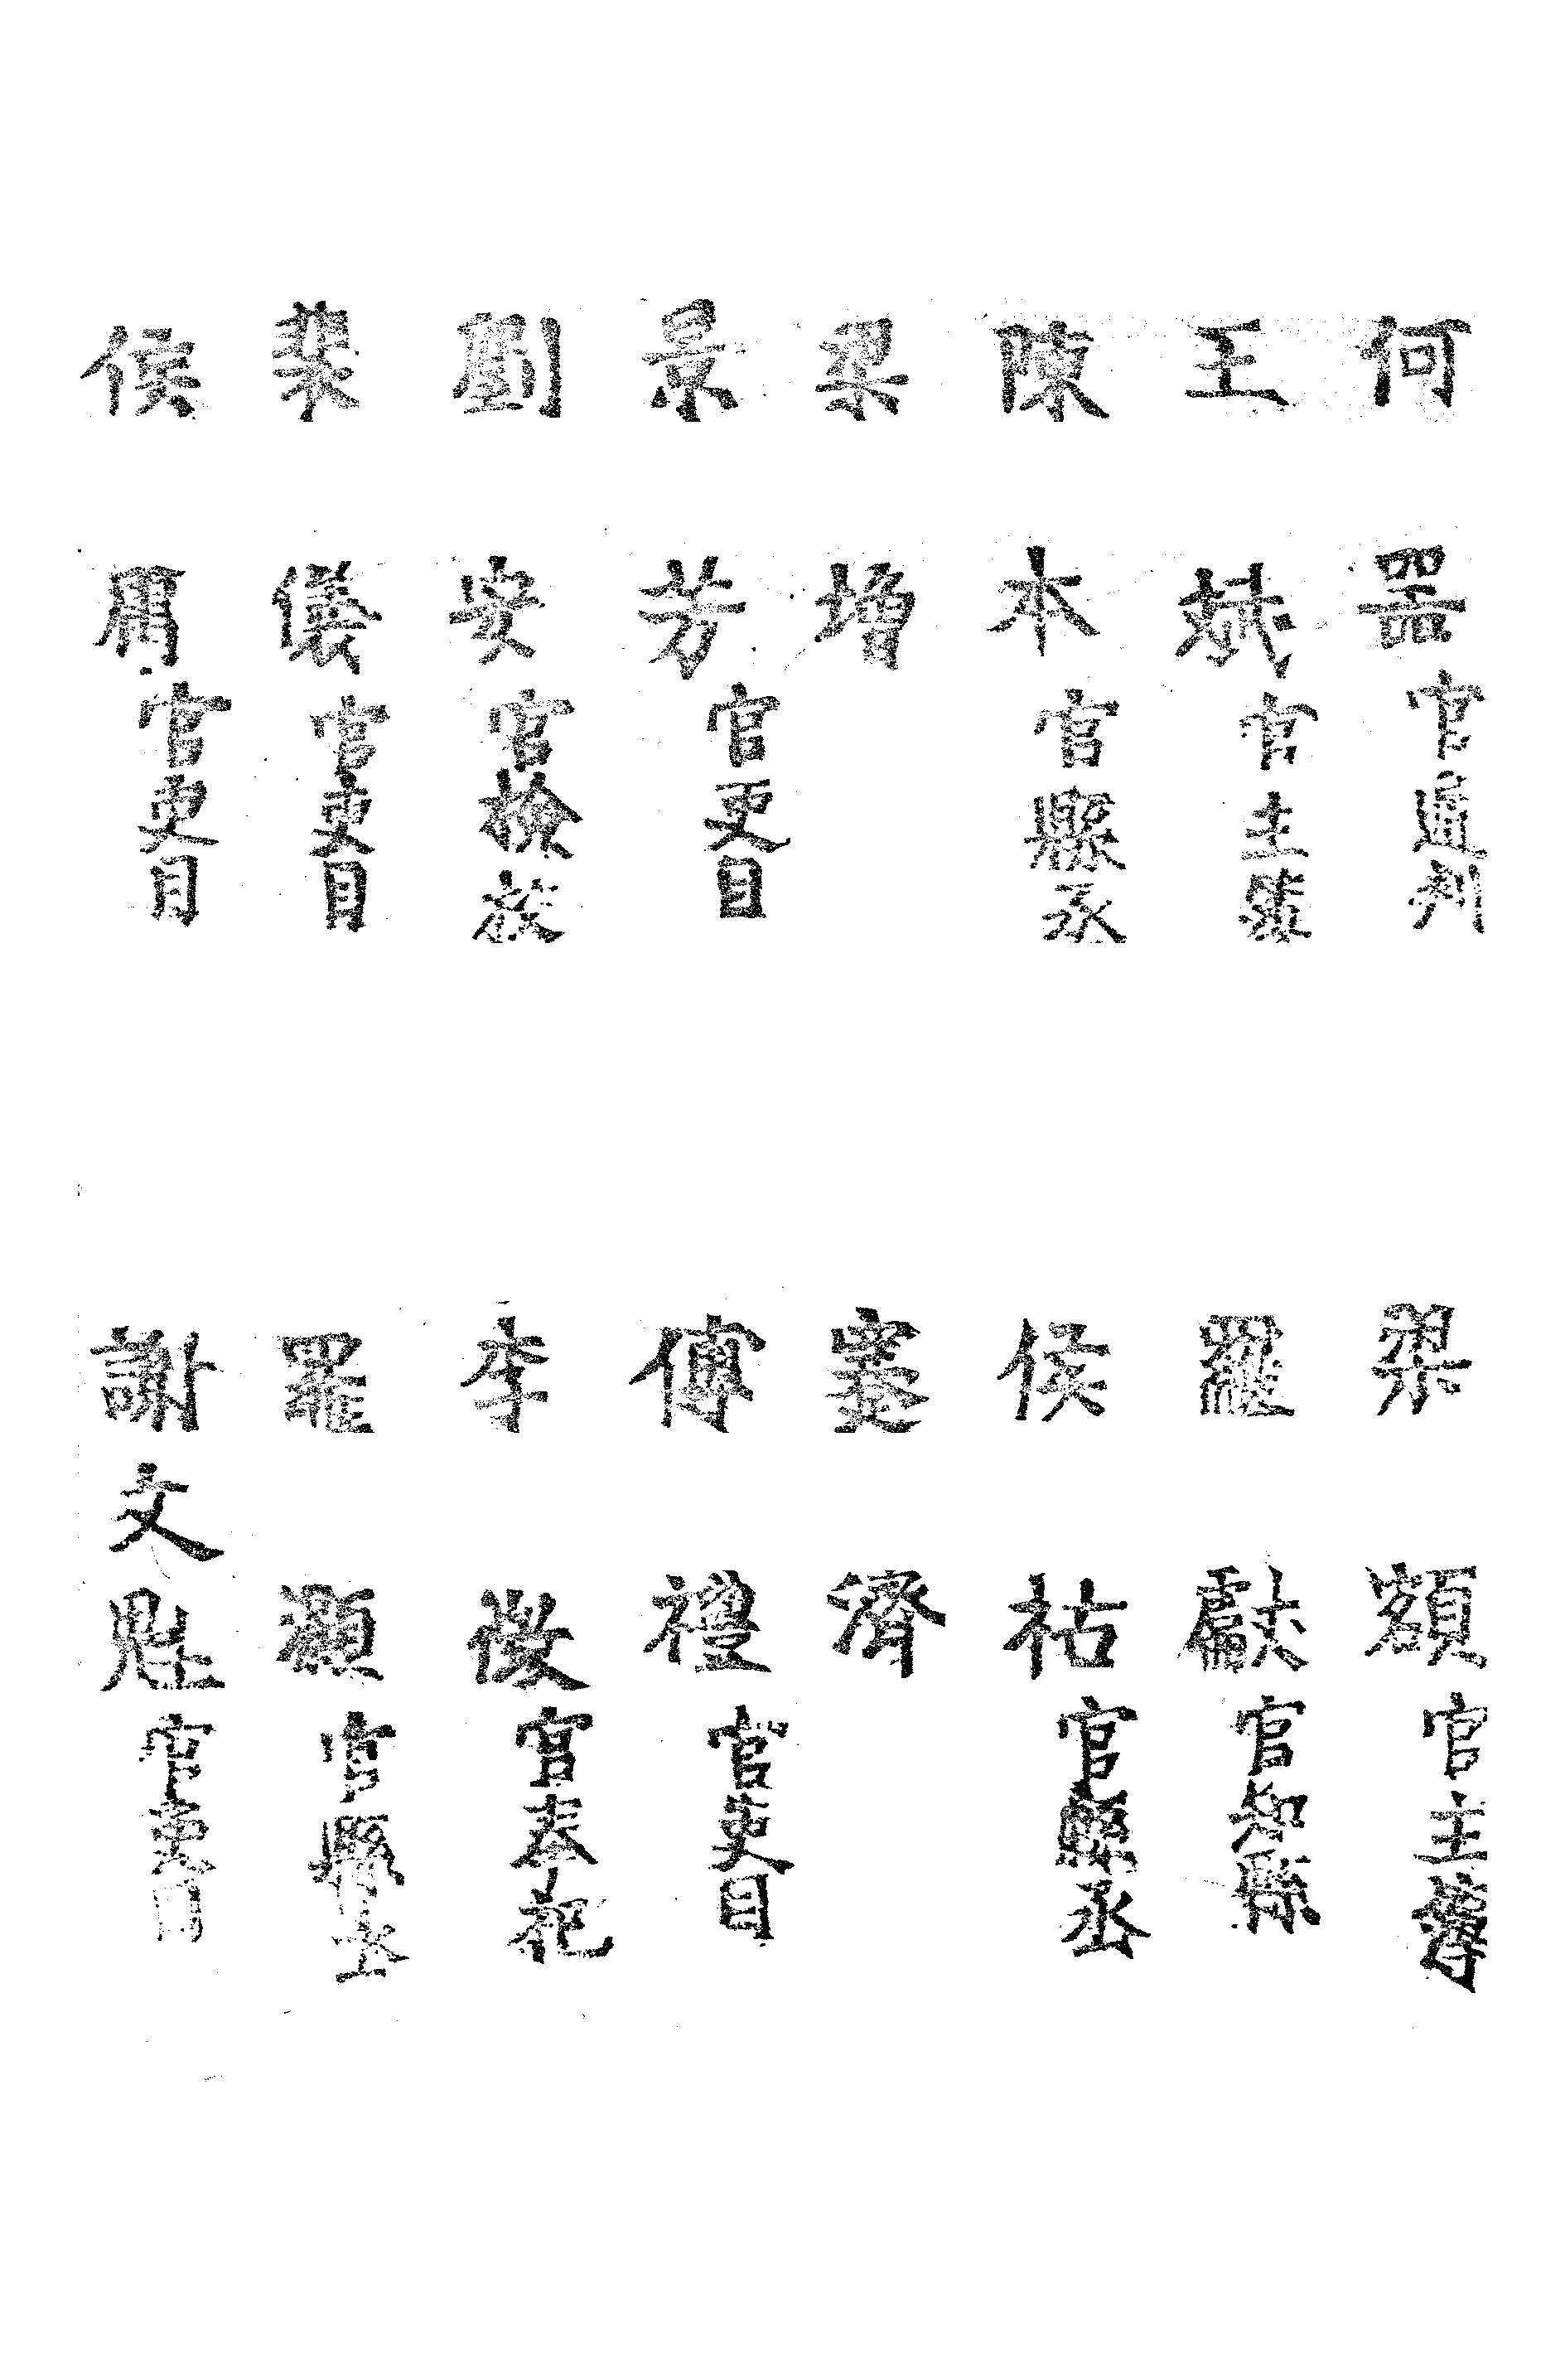 何器官通判
王斌官主簿
陳本官縣丞
梁增
景芳官吏目
劉安官檢校
裴儀官吏目
侯官吏目
梁額官主簿
羅獻官知縣
侯祜官縣丞
蹇濟
傅禮官吏目
李官奉祀
羅灝官縣丞
謝文魁官吏目